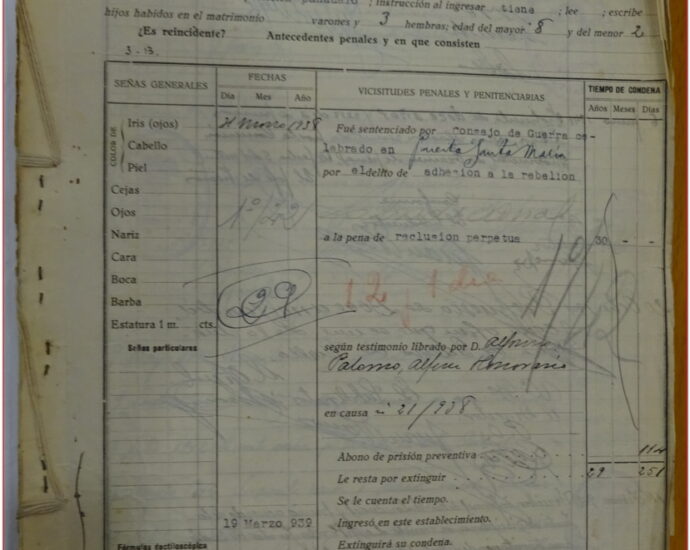 ; Instrucción al ingresar tiene ; lee ; escribe
hijos habidos en el matrimonio varones y 3 hembras; edad del mayor 8 y del menor 2
¿Es reincidente? Antecedentes penales y en que consisten
SEÑAS GENERALES
FECHAS
Día Mes Año
VICISITUDES PENALES Y PENITENCIARIAS
TIEMPO DE CONDENA
Años Meses Días
COLOR DE
Iris (ojos)
Cabello
Piel
Cejas
Ojos
Nariz
Cara
Boca
Barba
Estatura 1 m. cts.
Señas particulares
Fórmula dactiloscópica
29
19 Marzo 939
Fué sentenciado por Consejo de Guerra ce-
lebrado en Puerto Santa María
por el delito de adhesion a la rebelion
a la pena de reclusion perpetua 30 - -
12 y 1 dia
según testimonio librado por D. Alfonso
Palomo, Alferez Honorario
en causa nº 21/938
Abono de prisión preventiva
Le resta por extinguir 29 251
Se le cuenta el tiempo.
Ingresó en este establecimiento.
Extinguirá su condena.